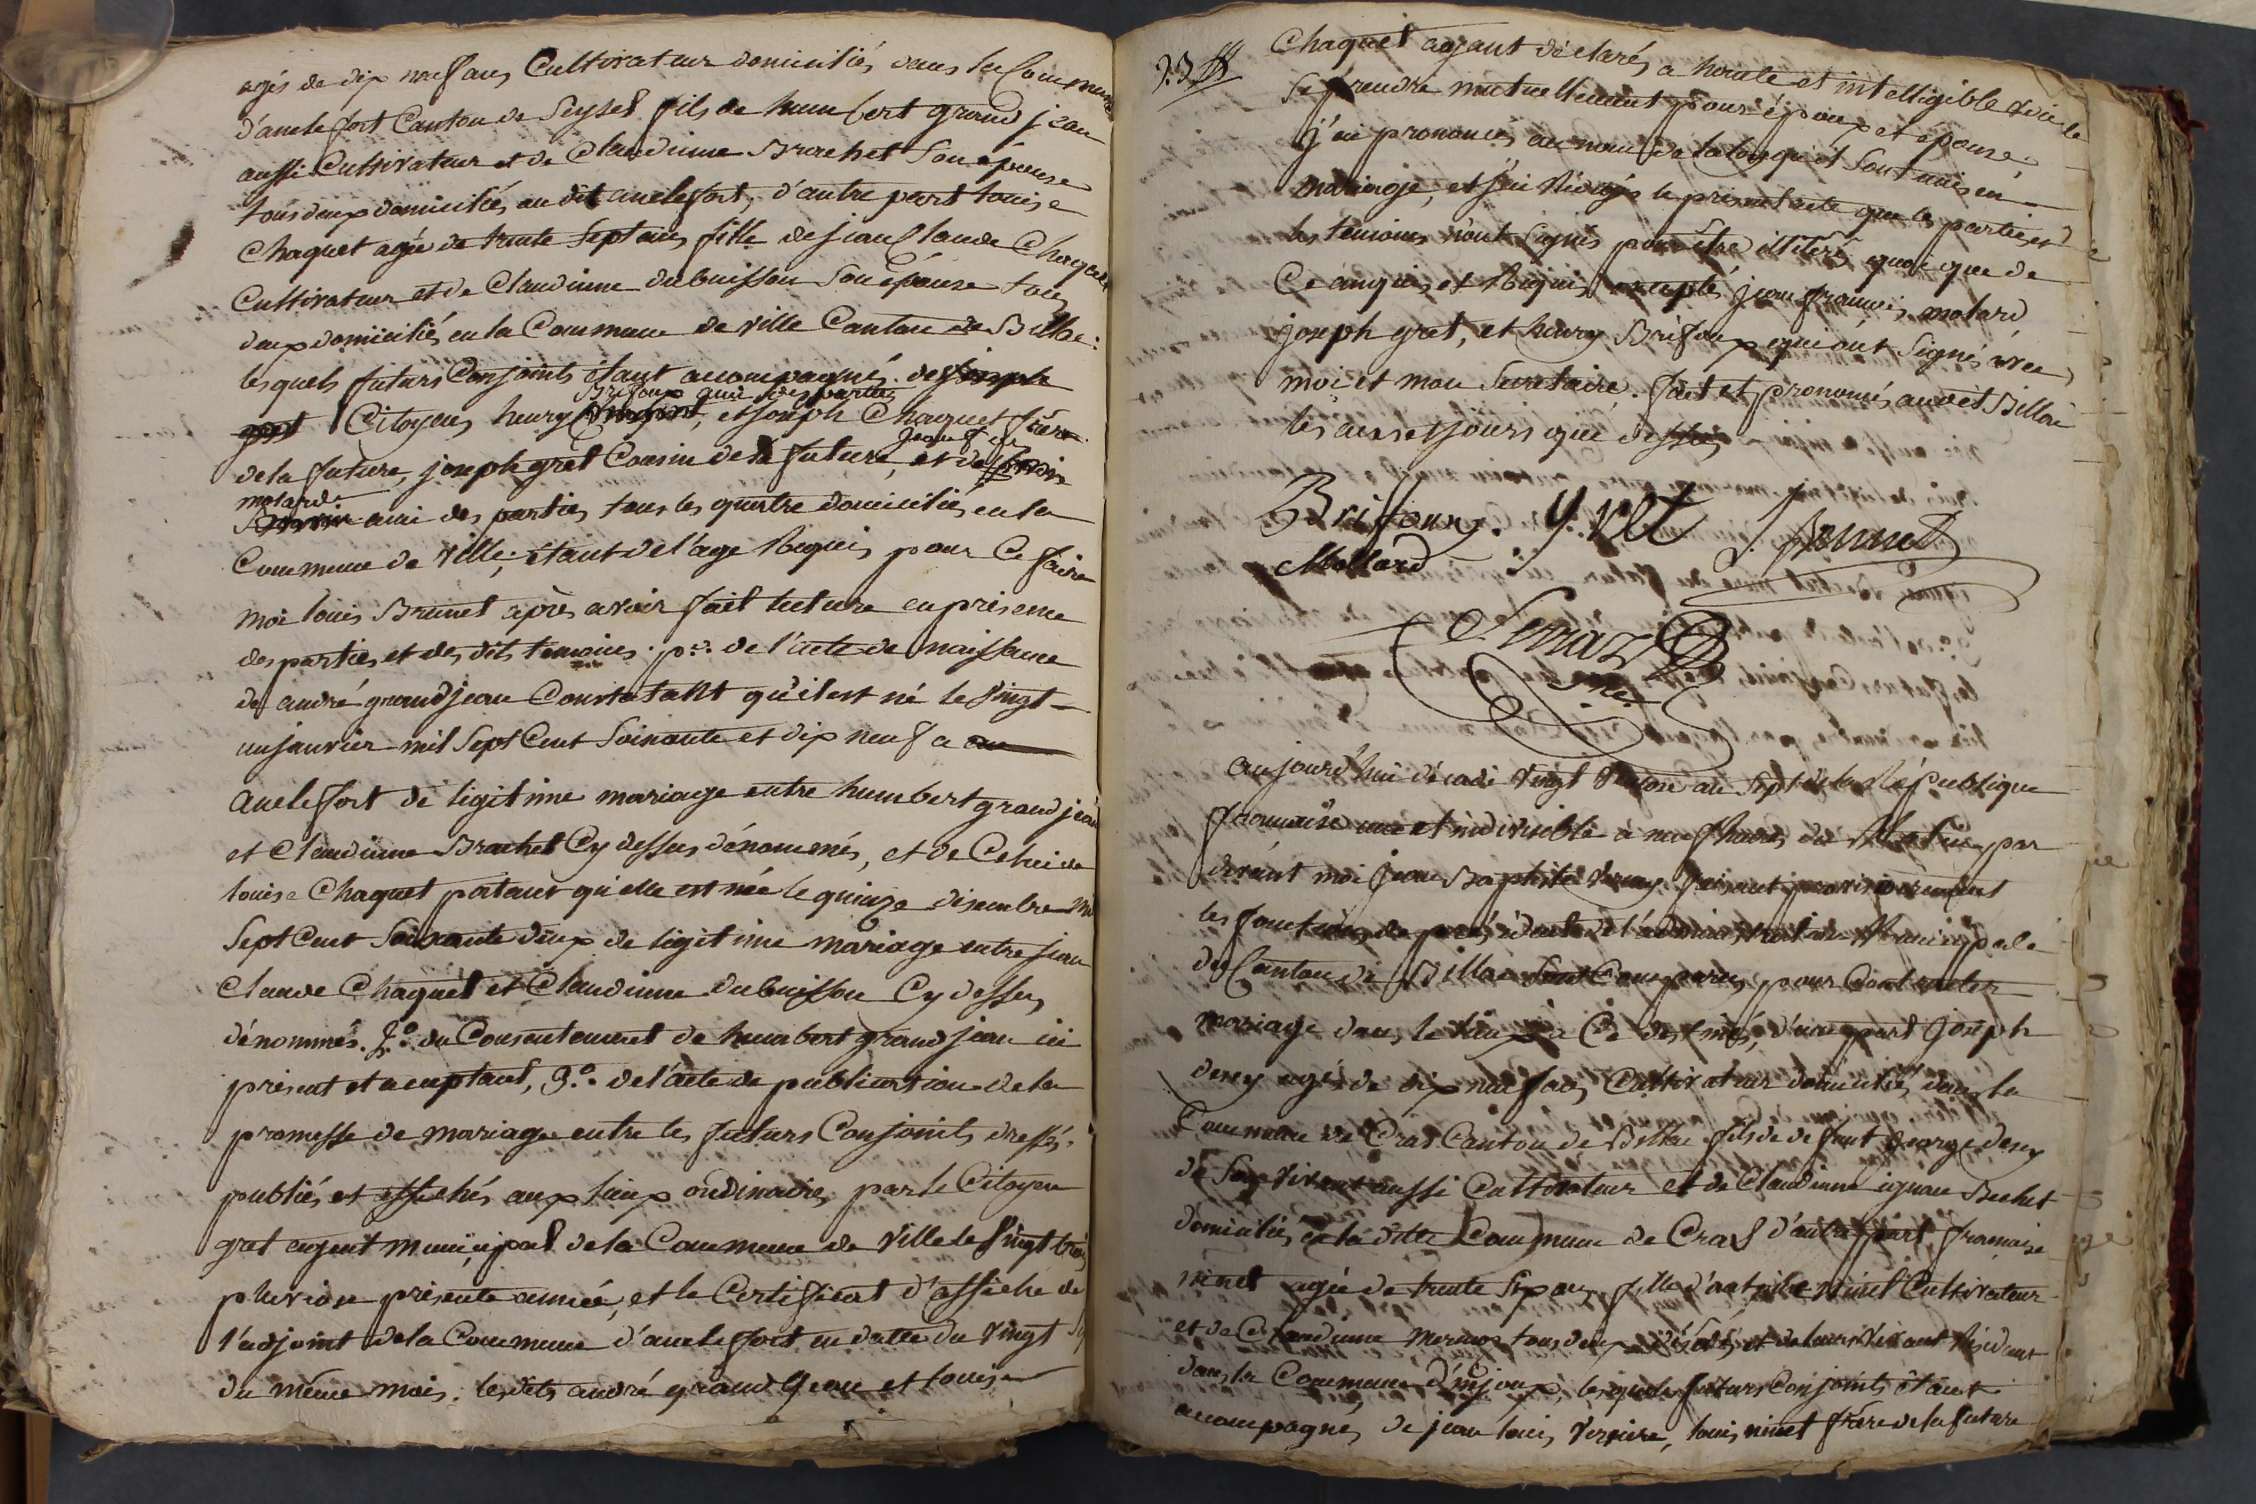 agés de dix neuf ans, Cultivateur domiciliés dans la Commune
d'anclefort Canton de Seyssel fils de humbert grand jean
aussi Cultivateur et de Claudinne Brachet Son épouse
tous deux domiciliés au dit anclefort, d'autre part Louise
Chaquet agée de trente Sept ans, fille de jean Claude Chaquet
Cultivateur et de Claudinne dubuisson Son épouse tous
deux domiciliés en la Commune de Ville Canton de Billia:
lesquels futurs Conjoints étant accompagnés des
Brifoux ami des parties
Citoyens henry, et joseph Chaquet frère
jean f cois
de la future, joseph gret Cousin de la future, et de
molard
ami des parties tous les quatre domiciliés en la
Commune de Ville; étant de l'age Requis pour Ce faire
moi louis Brunet après avoir fait lecture en présence
des parties et des dits temoins. p.o de l'acte de naissance
de andré grandjean Constatant qu'il est né le Vingt
un janvier mil Sept Cent Soixante et dix neuf a
anclefort de légitime mariage entre humbert grand jean
et Claudinne Brachet Cy dessus dénommés, et de Celui de
louise Chaquet portant qu'elle est née le quinze désembre mil
Sept Cent Soixante deux de légitime mariage entre jean
Claude Chaquet et Claudinne dubuisson Cy dessus
dénommés. 2.o du Consentement de humbert grand jean ici
présent et aceptant, 3.o de l'acte de publication de la
promesse de mariage entre les futurs Conjoints dressés,
publiés et affichés aux lieux ordinaires par le Citoyen
gret agent municipal de la Commune de Ville le Vingt trois
pluviose présente année, et le Certificat d'affiche de
l'adjoint de la Commune d'anclefort en datte du Vingt
du même mois. les dits andré grand Jean et louise
23
Chaquet ayant déclarés a haute et intelligible Voix de
Se prendre mutuellement pour époux et épouse
j'ai prononcés au nom de la loy qu'il Sont unis en
mariage, et j'ai Rédigés le présent acte que les parties et
les temoins n'ont Signés pour être illiterés quoi que de
Ce enquis et Requis, exceptés jean françois molard
joseph gret, et henry Brifoux qui ont Signés avec
moi et mon Secretaire. fait et prononcés au dit Billia
les ans et jours que dessus
Brifoux. y. ret
Mollard
Serraz
Sre
aujourd'hui décadi Vingt Ventose an Sept de la République
française une et indivisible à neuf heures du Matin, par
devant moi jean Baptiste faisant provisoirement
les fonctions de président de l'administration Municipale
du Canton de Billia Sont Comparus pour Contracter
mariage dans le lieux a Ce destinés, d'une part joseph
derey agés de dix neuf ans, Cultivateur domicilié dans la
Commune de Cras Canton de Billia fils de defunt george derey
de Son Vivant aussi Cultivateur et de Claudinne Bechet
domiciliés en la ditte Commune de Cras d'autre part, françoise
ninet agée de trente Six ans, fille d'antoine ninet Cultivateur
et de Claudinne tous deux et de leurs Vivant Résidant
dans la Commune d'injoux, lesquels futurs Conjoints étant
accompagnés de jean louis, louis ninet frère de la future